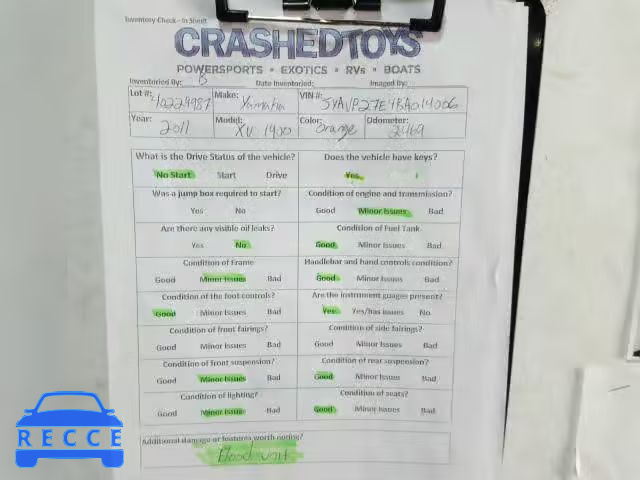 Inventory Check - In Sheet
CRASHEDTOYS
POWERSPORTS • EXOTICS • RVs • BOATS
Inventoried By: B Date Inventoried: Imaged By:
Lot #: 40224987 Make: Yamaha VIN #: JYAVP27E4BA014006
Year: 2011 Model: XV 1900 Color: Orange Odometer: 2469
What is the Drive Status of the vehicle? Does the vehicle have keys?
No Start Start Drive Yes
Was a jump box required to start? Condition of engine and transmission?
Yes No Good Minor Issues Bad
Are there any visible oil leaks? Condition of Fuel Tank
Yes No Good Minor Issues Bad
Condition of Frame Handlebar and hand controls condition?
Good Minor Issues Bad Good Minor Issues Bad
Condition of the foot controls? Are the instrument guages present?
Good Minor Issues Bad Yes Yes/has issues No
Condition of front fairings? Condition of side fairings?
Good Minor Issues Bad Good Minor Issues Bad
Condition of front suspension? Condition of rear suspension?
Good Minor Issues Bad Good Minor Issues Bad
Condition of lighting? Condition of seats?
Good Minor Issues Bad Good Minor Issues Bad
Additional damage or features worth noting?
Flood unit
RECCE